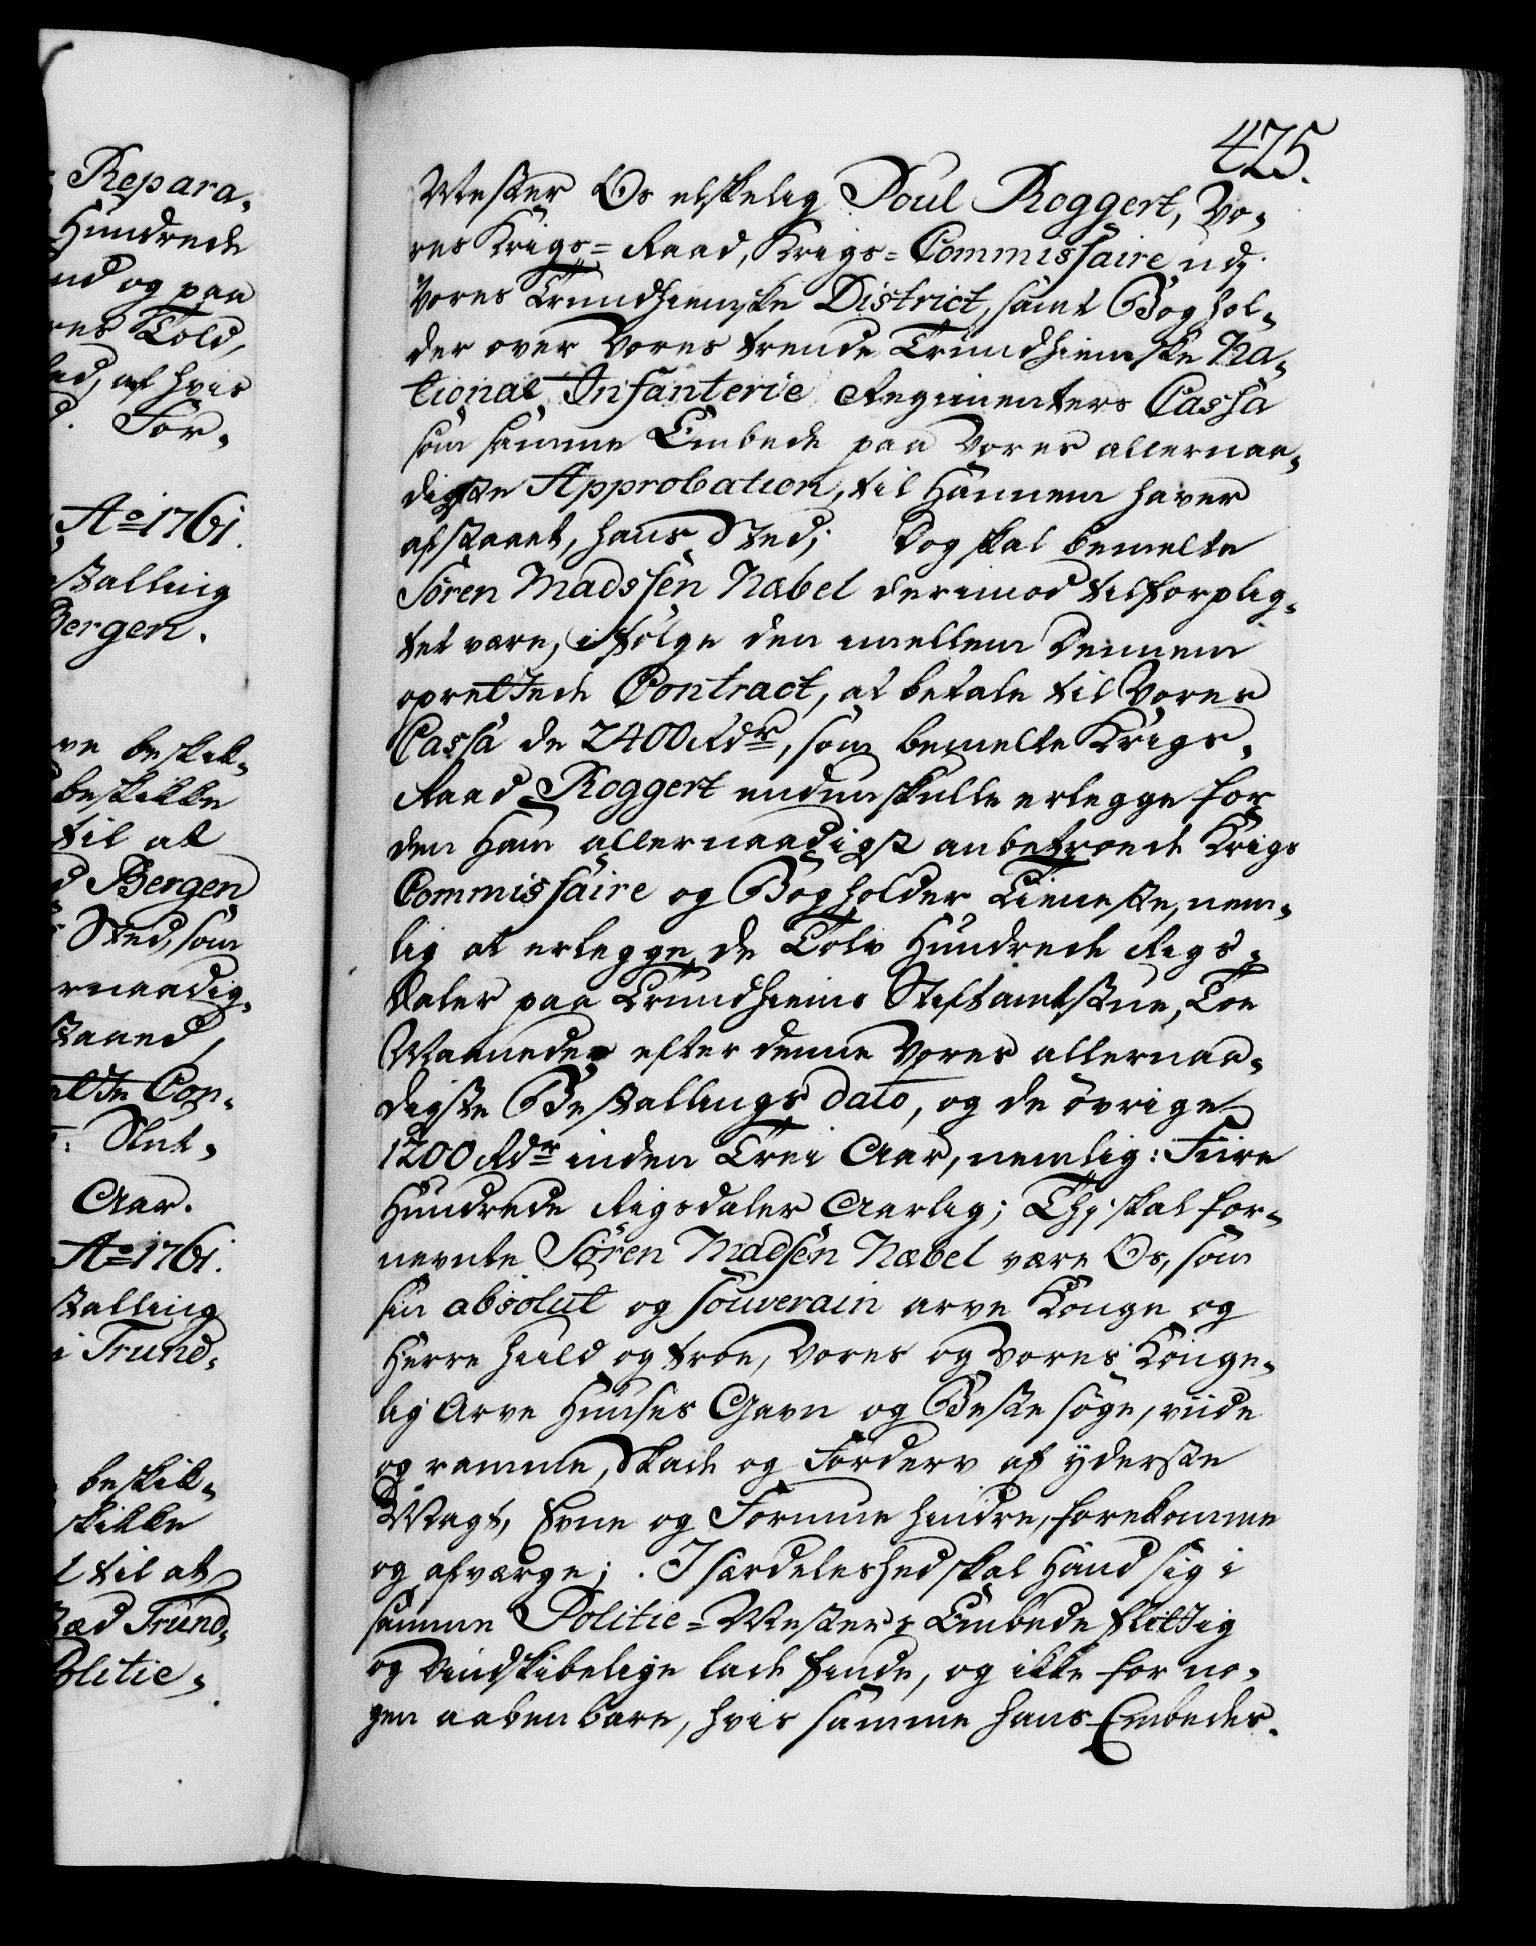 Repara-
Hundrede
nd og paa
res Told,
ad, at hvis
For-
Ao 1761.
stalling
Bergen.
ve beskik-
beskikke
til at
d Bergen
Sted, som
rnaadig-
staaed,
Con-
Slut-
Aar.
Ao 1761.
stalling
i Trund-
beskik-
skikke
l til at
Trund-
Politie-
425.
Mester Os elskelig Poul Roggert, Vo-
res Krigs-Raad, Krigs-Commissaire udj
Vores Trundhiemske District, samt Boghol-
der over Vores trende Trundhiemske Na-
tional Infanterie Regimenters Cassa
som samme Embede paa Vores allernaa-
digste Approbation, til Hannem haver
afstaaet, hans Sted; Dog skal bemelte
Sören Madssen Næbel derimod tilforplig-
tet være, ifölge den imellem Dennem
oprettede Contract, at betale til Vores
Cassa de 2400 Rdr, som bemelte Krigs-
Raad Roggert endnu skulle erlegge for
den Ham allernaadigst anbetroede Krigs
Commissaire og Bogholder Tieneste, nem-
lig at erlegge de Tolv Hundrede Rigs-
daler paa Trundhiems Stiftamtstue, Toe
Maaneder efter denne Vores allernaa-
digste Bestallings dato, og de övrige
1200 Rdr inden Trei Aar, nemlig: Fiire
Hundrede Rigsdaler Aarlig; Thj skal for-
nevnte Sören Madsen Næbel være Os, som
sin absolut og souverain arve Konge og
Herre huld og troe, Vores og Vores Konge-
lig Arve Huuses Gavn og Beste söge, viide
og ramme, Skade og Forderv af yderste
Magt, Evne og Formue hindre, forekomme
og afværge; I særdeleshed skal Hand sig i
samme Politie-Mesters Embede flittig
og Vindskibelige lade finde, og ikke for no-
gen aabenbare, hvis samme hans Embeder-